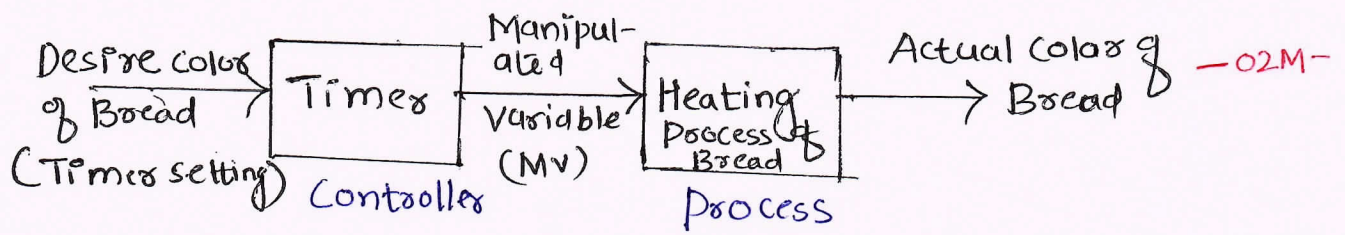 Desire color
of Bread
(Timer setting)
Timer
Controller
Manipul-
ated
Variable
(MV)
Heating
Process of
Bread
Process
Actual Color of
Bread
-02M-